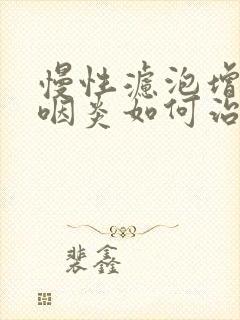 慢性濾泡增
咽炎如何治
裴鑫